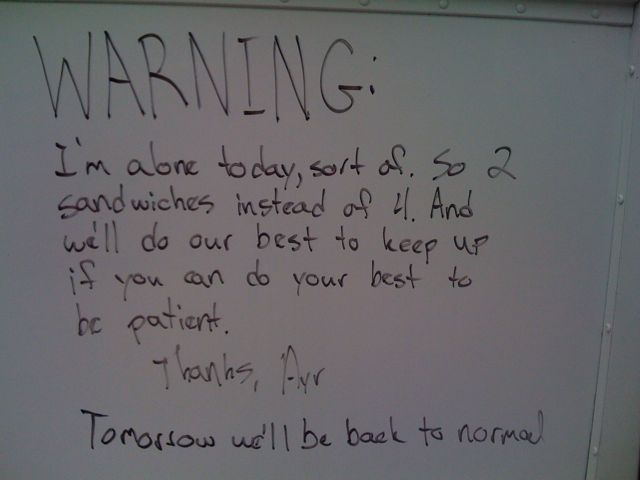 WARNING:
I'm alone today, sort of. So 2
sandwiches instead of 4. And
we'll do our best to keep up
if you can do your best to
be patient.
Thanks, Avr
Tomorrow we'll be back to normal